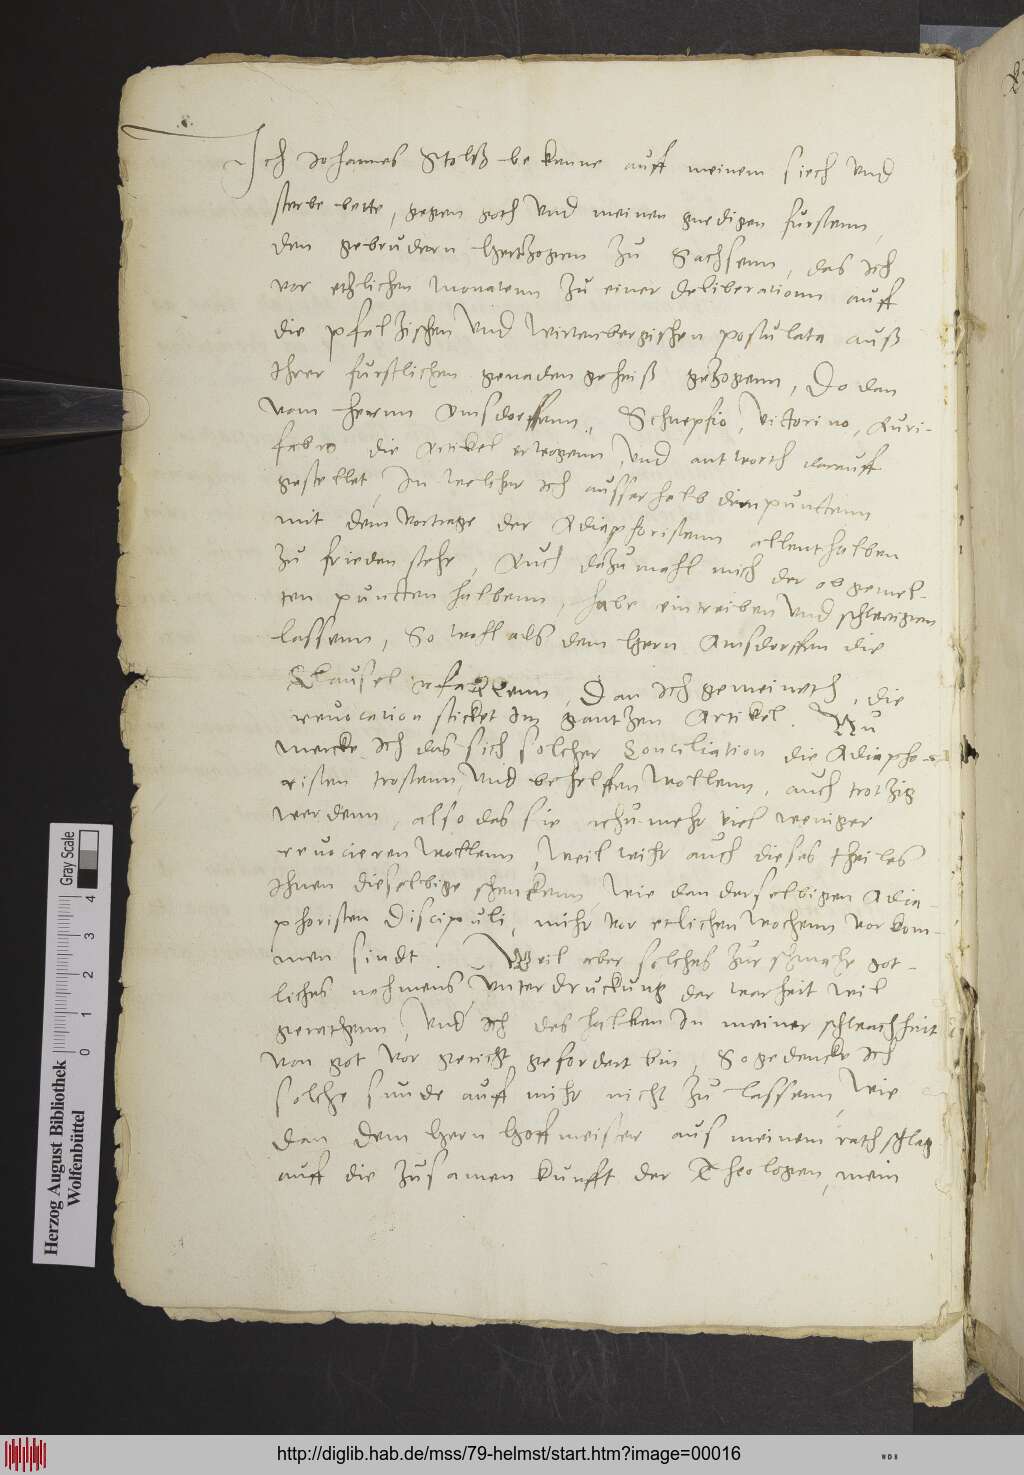 Ich Johannes Stolß bekenne auff meinem siech Vnd
sterbe bette, gegen goth Vnd meinen gnedigen furstenn,
den gebrudern Hertzogenn Zu Sachsenn, das Ich
vor etzlichen Monatenn Zu einer deliberationn auff
die pfaltzischen Vnd Wirtenbergischen postulata auß
Ihrer furstlichen genaden geheiß gezogenn, Do dan
vom Herrnn Amsdorffenn, Schnepfio, Victorino, Auri-
fabro die Artikel erwogenn, Vnd antworth darauff
gestellet, In welcher Ich ausserhalb punctenn
mit dem Vortrage der Adiapforistenn allenthalben
Zu frieden stehe, Auch dazumahl mich der obgemel-
ten puncten halbenn, habe eintreiben Vnd schweigenn
lassenn, So wohl als dem Hern Amsdorffen die
Clausel, Dan Ich gemeineth, die
revocation sticket Im gantzen Artikel. Nu
mercke Ich das sich solcher Conciliation die Adiapho-
risten trostenn, Vnd behelffen wollenn, auch trotzig
werdenn, also das sie ichu mehr Viel weniger
revocieren wollenn, Weil wihr auch dieses theiles
Ihnen dieselbige schencken, Wie dan derselbigen Adia-
phoristen Discipuli, mihr vor etlichen Wochenn vorkom-
men sindt. Weil aber solches zur schmahe got-
liches nahmens Vnterdruckung der warheit wil
gerathenn, Vnd Ich des halben In meiner schwachheit
von got vor gericht gefordert bin, So gedencke Ich
solche sunde auff mihr nicht Zu lassenn, Wie
dan dem Hern Hoffmeister aus meinem rathschlag
auff die Zusamenkunfft der Theologen, mein
Gray Scale
0 1 2 3 4
Herzog August Bibliothek
Wolfenbüttel
http://diglib.hab.de/mss/79-helmst/start.htm?image=00016
WDB